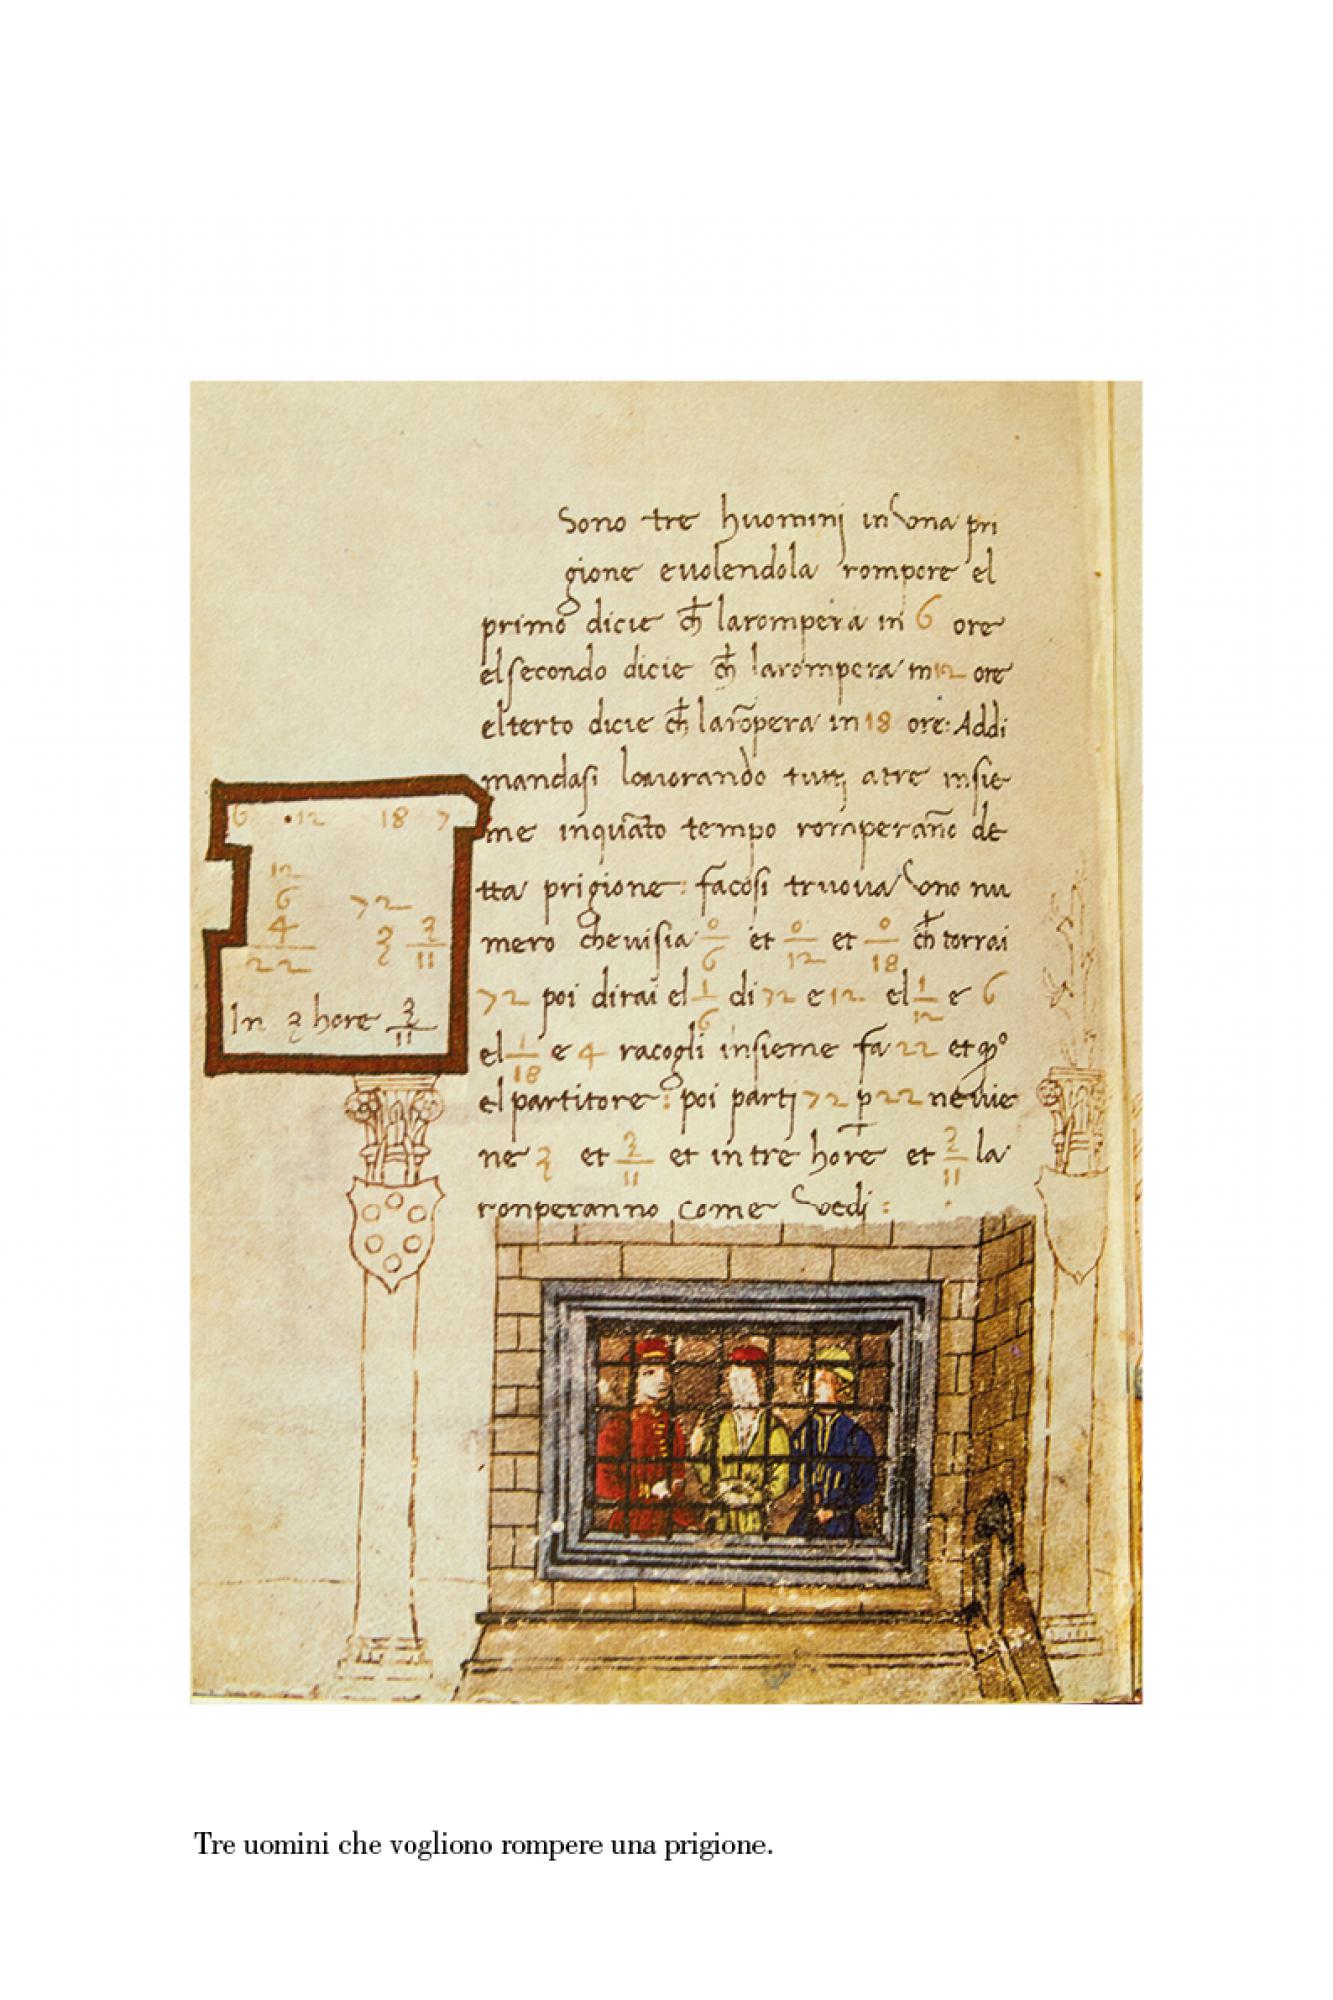 Sono tre huomini in una pri
gione e volendola rompore el
primo dicie ch̄ la rompera in 6 ore
el secondo dicie ch̄ la rompera in 12 ore
el terto dicie ch̄ la rōpera in 18 ore: Addi
mandasi lavorando tutti a tre insie
me in quāto tempo romperāno de
tta prigione: facosi truova uno nu
mero che vi sia 0/6 et 0/12 et 0/18 ch̄ torrai
72 poi dirai el 1/6 di 72 e 12 el 1/12 e 6
el 1/18 e 4 racogli insieme fa 22 et qº
el partitore: poi parti 72 p 22 ne vie
ne 3 et 3/11 et in tre hore et 3/11 la
ronperanno come vedi:
6 · 12 18 72
12
6 72
4 3 3/11
22
In 3 hore 3/11
Tre uomini che vogliono rompere una prigione.